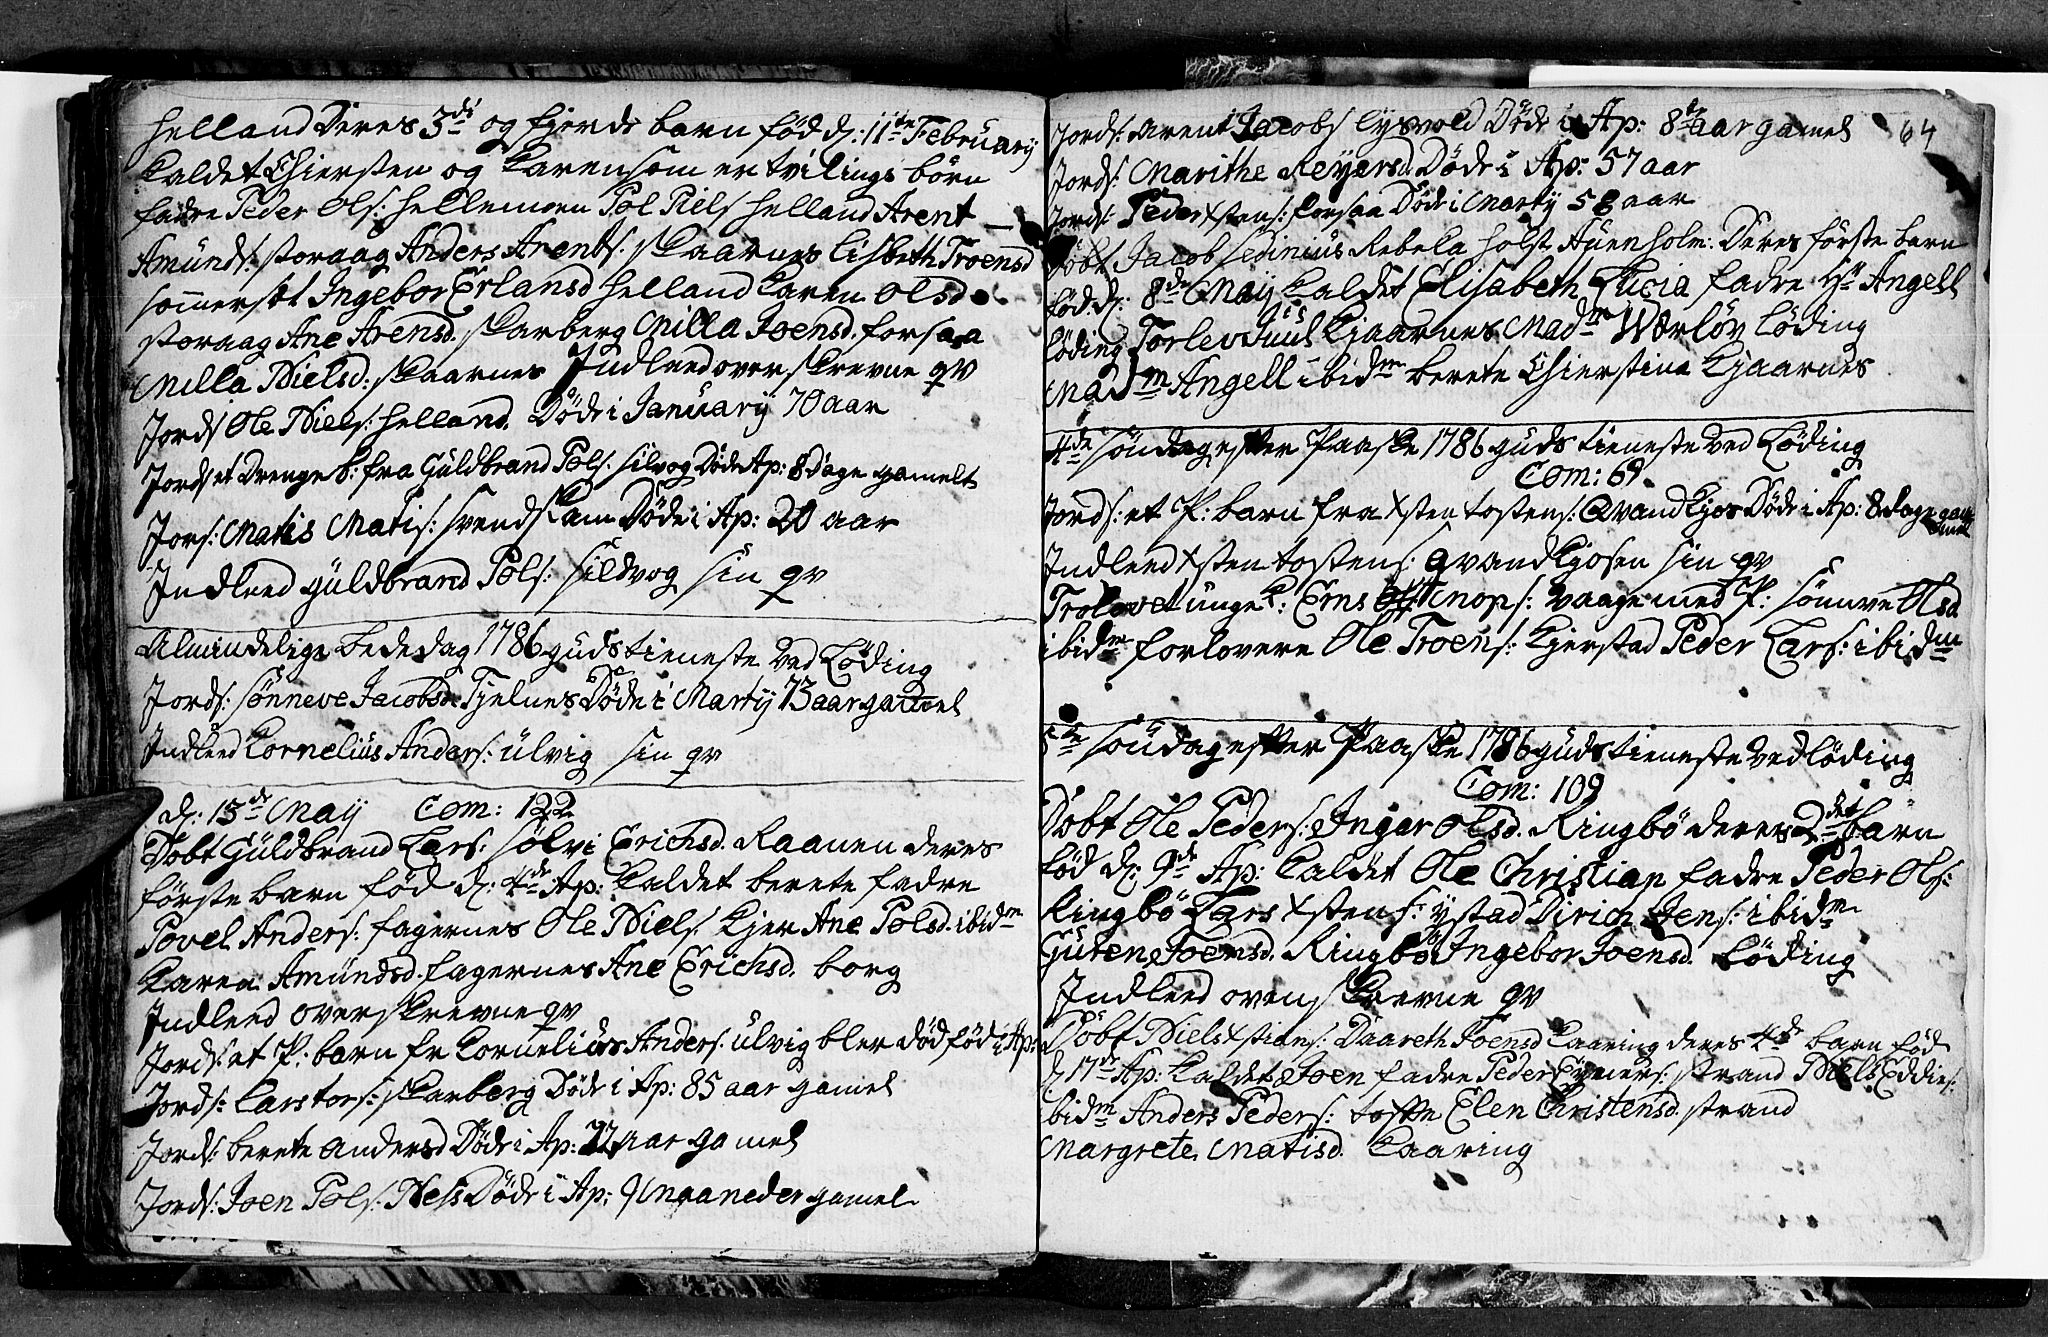 helland Deres 3di og fierde barn fød d: 11te February
kaldet Chiersten og Karen som er tvilings børn
fadre Peder Ols: hellemoen Pol Niels helland Arent
Amünds: storaag Anders Arents: skaarnes Lisbeth Troensd
sommerset Ingebor Erlansd helland Karen Olsd.
storaag Ane Arensd. skarberg Milla Joensd. forsaa
Milla Nielsd: skaarnes Indleed overskrevne qv
Jords Ole Niels: helland. Døde i January 70 aar
Jords et Drenge b: fra Güldbrand Pols. silvog Døde Ap: 8 dage gamelt
Jors: Matis Matis: svendskam Døde i Ap: 20 aar
Indleed Güldbrand Pols: sildvog sin qv
Almindelige bededag 1786 gudstieneste ved Løding
Jords: sønneve Jacobsd. Tjelnes Døde i Marty 73 aar gamel
Indleed Cornelius Anders: ulvig sin qv
d: 13de May Com: 122
Døbt Güldbrand Lars: sølvi Erichsd. Raanen deres
første barn fød d: 4de Ap: kaldet berete fadre
Povel Anders: fagernes Ole Niels: Kjer Ane Polsd. ibidm
Karen Amündsd. fagernes Ane Erichsd. borg
Indleed overskrevne qv
Jords: et P: barn fr Cornelius Anders: ulvig blev dødfød i Ap:
Jords: Lars tors: skarberg Døde i Ap: 85 aar gamel
Jords: berete andersd Døde i Ap: aar gamel
Jords: Joen Pols: Ness Døde i Ap: 9 maaneder gamel
64
Jords: arent Jacobs Døde i Ap: 8te aar gamel
Jords: Marithe Reyersd. Døde i Ap: 57 aar
Jords: Peder Xstens: forsaa Døde i Marty 58 aar
Døbt Jacob sedinius Rebela holst Auenholm: Deres første barn
fød d: 8de May kaldet Elisabeth Lucia fadre Hr Angell
løding Torlev Juul Kjaarnes Madm Wærløv løding
Madm Angell ibidm berete Chierstina Kjaarnes
4de søndag efter Paaske 1786 guds tieneste ved Løding
Com: 69.
Jords: et P: barn fra Xsten tostens: Qvandkjos Døde i Ap: 8 dage gamel
Indleed Xsten tostens: qvandkjosen sin qv
Trolovet unge k: Erns Knops: vaage med P: sønnve Olsd
ibidm forlovere Ole Troens: Kjerstad Peder Lars: ibidm
5te søndag efter Paaske 1786 guds tieneste ved løding
Com: 109
Døbt Ole Peders: Inger Olsd. Ringbø deres 2det barn
fød d: 9de Ap: kaldet Ole Christian fadre Peder Ols:
Ringbø Lars Xstens: ystad Dirich Jens: ibidm
Guren Joensd. Ringbø Ingebor Joensd. Løding
Indleed ovenskrevne qv
Døbt Niels Xstians: Daareth Joensd Kaaring deres 4de barn fød
d 17de Ap: kaldet Joen fadre Peder strand Niels Eddies:
ibidm Anders Peders: Elen Christensd. strand
Margrete Matisd. Kaaring